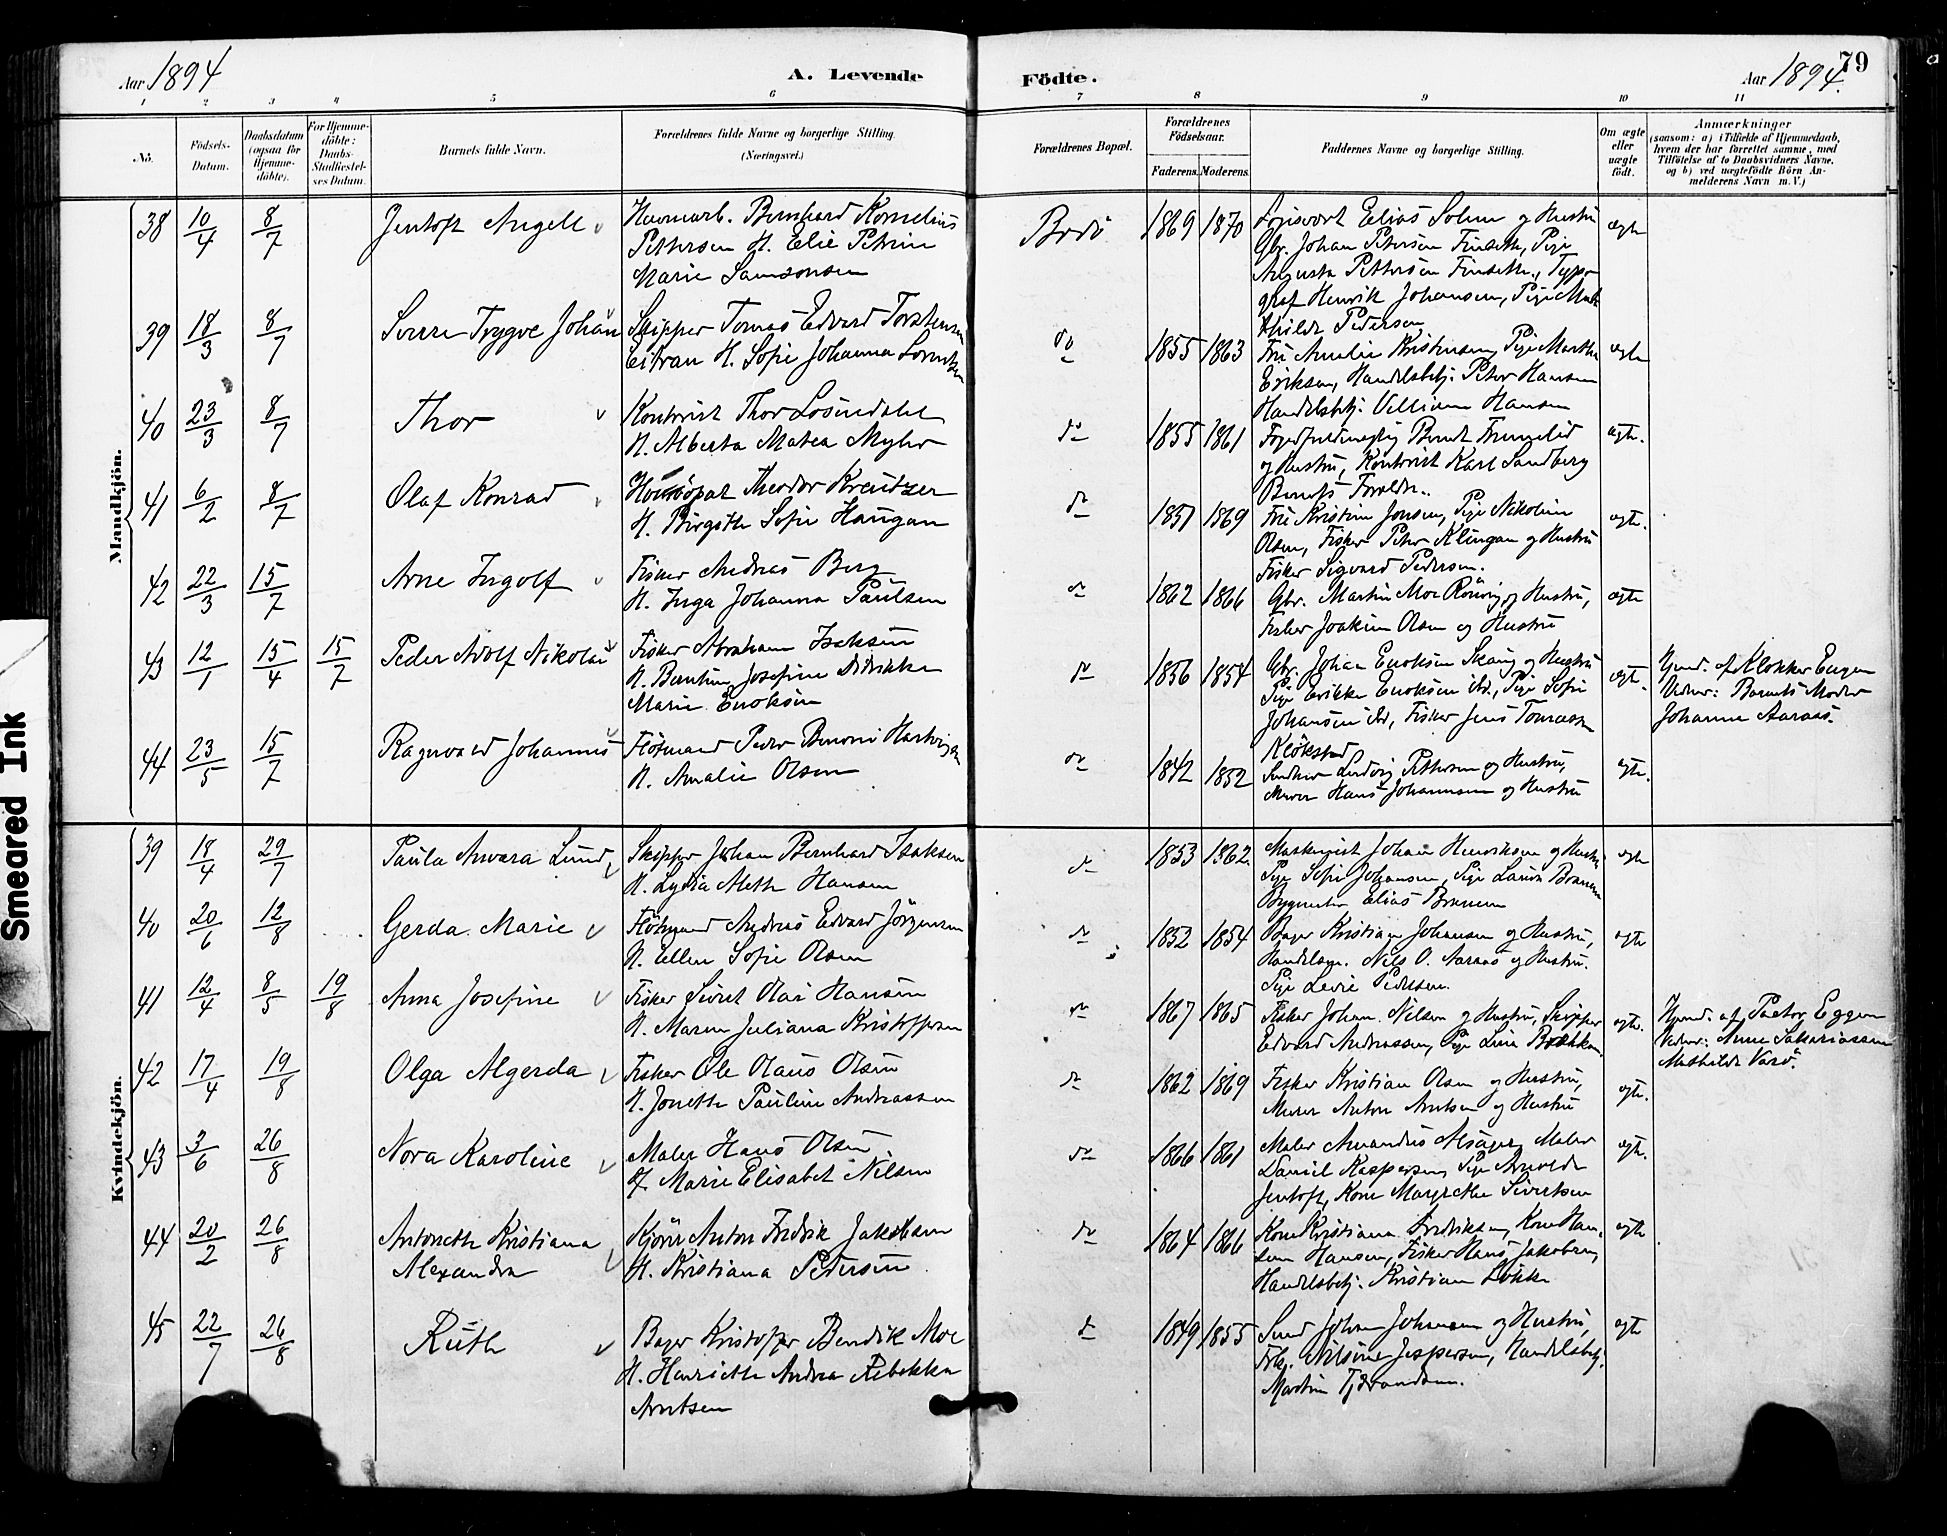 Aar 1894
A. Levende Födte.
Aar 1894.
79
1 2 3 4 5 6 7 8 9 10 11
No.
Födsels-
Datum.
Daabsdatum
(ogsaa for
Hjemme-
döbte).
For Hjemme-
döbte:
Daabs-
Stadfæstel-
ses Datum.
Barnets fulde Navn.
Forældrenes fulde Navne og borgerlige Stilling.
(Næringsvei.)
Forældrenes Bopæl.
Forældrenes
Födselsaar.
Faderens. Moderens.
Faddernes Navne og borgerlige Stilling.
Om ægte
eller
uægte
födt.
Anmærkninger
(saasom: a) i Tilfælde af Hjemmedaab,
hvem der har forrettet samme, med
Tilföielse af to Daabsvidners Navne,
og b) ved uægtefödte Börn An-
melderens Navn m. V.)
Mandkjön.
38 10/4 8/7 Jentoft Angell
Havnearb. Bernhard Kornelius
Pettersen H. Elie Petrine
Marie Samsonsen
Bodö 1869 1870
Elias Solem og Hustru
Gbr. Johan Petersen Finseth, Pige
Augusta Pettersen Finseth, Typo-
graf Henrik Johansen, Pige Mat-
hilde Pedersen
ægte
39 18/3 8/7 Sverre Trygve Johan
Skipper Tomas Edvard Torstensen
Eitran H. Sofie Johanna Lorentsen
do 1855 1863
Fru Amalie Kristensen, Pige Martha
Eriksen, Handelsbetj. Peter Hansen
Handelsbetj. Villiam Hansen
ægte
40 23/3 8/7 Thor
Kontorist Thor Losindahl
H. Alberta Matea Myhre
do 1855 1861
Fogedfuldmægtig Berndt
og Hustru, Kontorist Karl Sandberg
Barnets Forældre.
ægte.
41 6/2 8/7 Olaf Konrad
Homöopat Theodor Kreutzer
H. Birgithe Sofie Haugan
do 1851 1869
Fru Kristine Jonsen, Pige Nikoline
Olsen, Fisker Peter Klingan og Hustru
Fisker Sigvard Pedersen.
ægte.
42 22/3 15/7 Arne Ingolf
Fisker Andreas Berg
H. Inga Johanna Paulsen
do 1862 1866
Gbr. Martin Moe Rönvig og Hustru,
Fisker Joakim Olsen og Hustru
ægte
43 12/1 15/4 15/7 Peder Adolf Nikolai
Fisker Abraham Isaksen
H. Berntine Josefine Didrikke
Marie Enoksen
do 1856 1854
Gbr. Johan Enoksen Skaug og Hustru
Pige Erikke Enoksen ibd., Pige Sofie
Johansen ibd, Fisker Jens Tomassen
Klökstad
ægte.
Hjmd. af Klokker Eugen
Vidner: Barnets Moder
Johanne Aaraas.
44 23/5 15/7 Ragnvald Johannes
Flötmand Peder Benoni Hartvigsen
H. Amalie Olsen
do 1842 1852
Ludvig Pettersen og Hustru,
Murer Hans Johannesen og Hustru
ægte.
Kvindekjön.
39 18/4 29/7 Paula Anvara Lund
Skipper Johan Bernhard Isaksen
H. Lydia Meth Hansen
do 1853 1862.
Maskinist Johan Henriksen og Hustru
Pige Sofie Johansen, Pige Laura Bramen
Bygmester Elias Bramen
ægte
40 20/6 12/8 Gerda Marie
Flötmand Andreas Edvard Jörgensen
H. Ellen Sofie Olsen
do 1852 1854
Bager Kristian Johansen og Hustru,
Handelsm. Nils O. Aaraas og Hustru.
Pige Levie Pedersen.
ægte
41 12/4 8/5 19/8 Anna Josefine
Fisker Sivert Olai Hansen
H. Maren Juliana Kristoffersen
do 1867 1865
Fisker Johan Nilsen og Hustru, Skipper
Edvard Andreassen, Pige Lina
ægte.
Hjmd. af Pastor Eggen
Vidner: Anne Sakariassen
Mathilde
42 17/4 19/8 Olga Algerda
Fisker Ole Olaus Olsen
H. Jonette Pauline Andreassen
do 1862 1869
Fisker Kristian Olsen og Hustru,
Murer Anton Arntsen og Hustru
ægte.
43 3/6 26/8 Nora Karoline
Maler Hans Olsen
H. Marie Elisabet Nilsen
do 1866 1861
Maler Amandus Alsager, Maler
Daniel Kaspersen, Pige
Jentoft, Kone Margrethe Sivertsen
ægte.
44 20/2 26/8 Antonette Kristiana
Alexandra
Anton Fredrik Jakobsen
H. Kristiana Petersen
do 1864 1866
Kone Kristiana Fredriksen, Kone
Hansen, Fisker Hans Jakobsen,
Handelsbetj. Kristian Lökke
ægte
45 22/7 26/8 Ruth
Bager Kristoffer Bendik Moe
H. Henriette Andrea Rebekka
Arntsen
do 1849 1855
Smed Johan Johansen og Hustru,
Frk. Nilsine Jespersen, Handelsbetj.
Martin Tjærandsen.
ægte
Smeared Ink